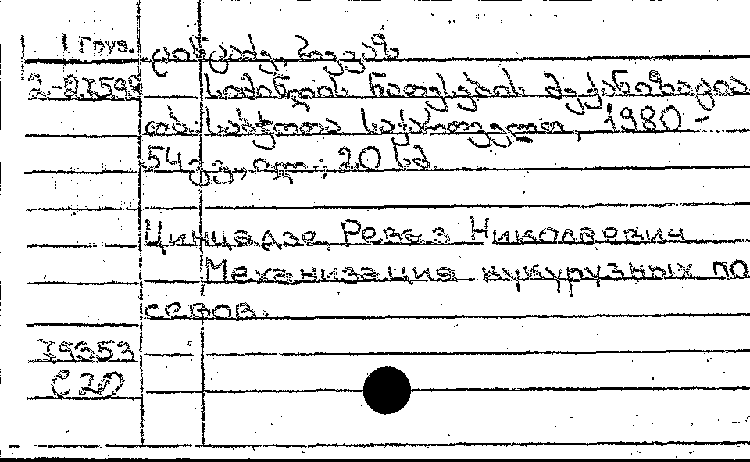 Груз. ცინცაძე, რევაზ
2-87599 სიმინდის ნათესების მექანიზაცია
თბ. საბჭოთა საქართველო, 1980 -
54გვ., ილ.; 20 სმ
Цинцадзе, Реваз Николаевич
Механизация кукурузных по
севов.
79353
с 20